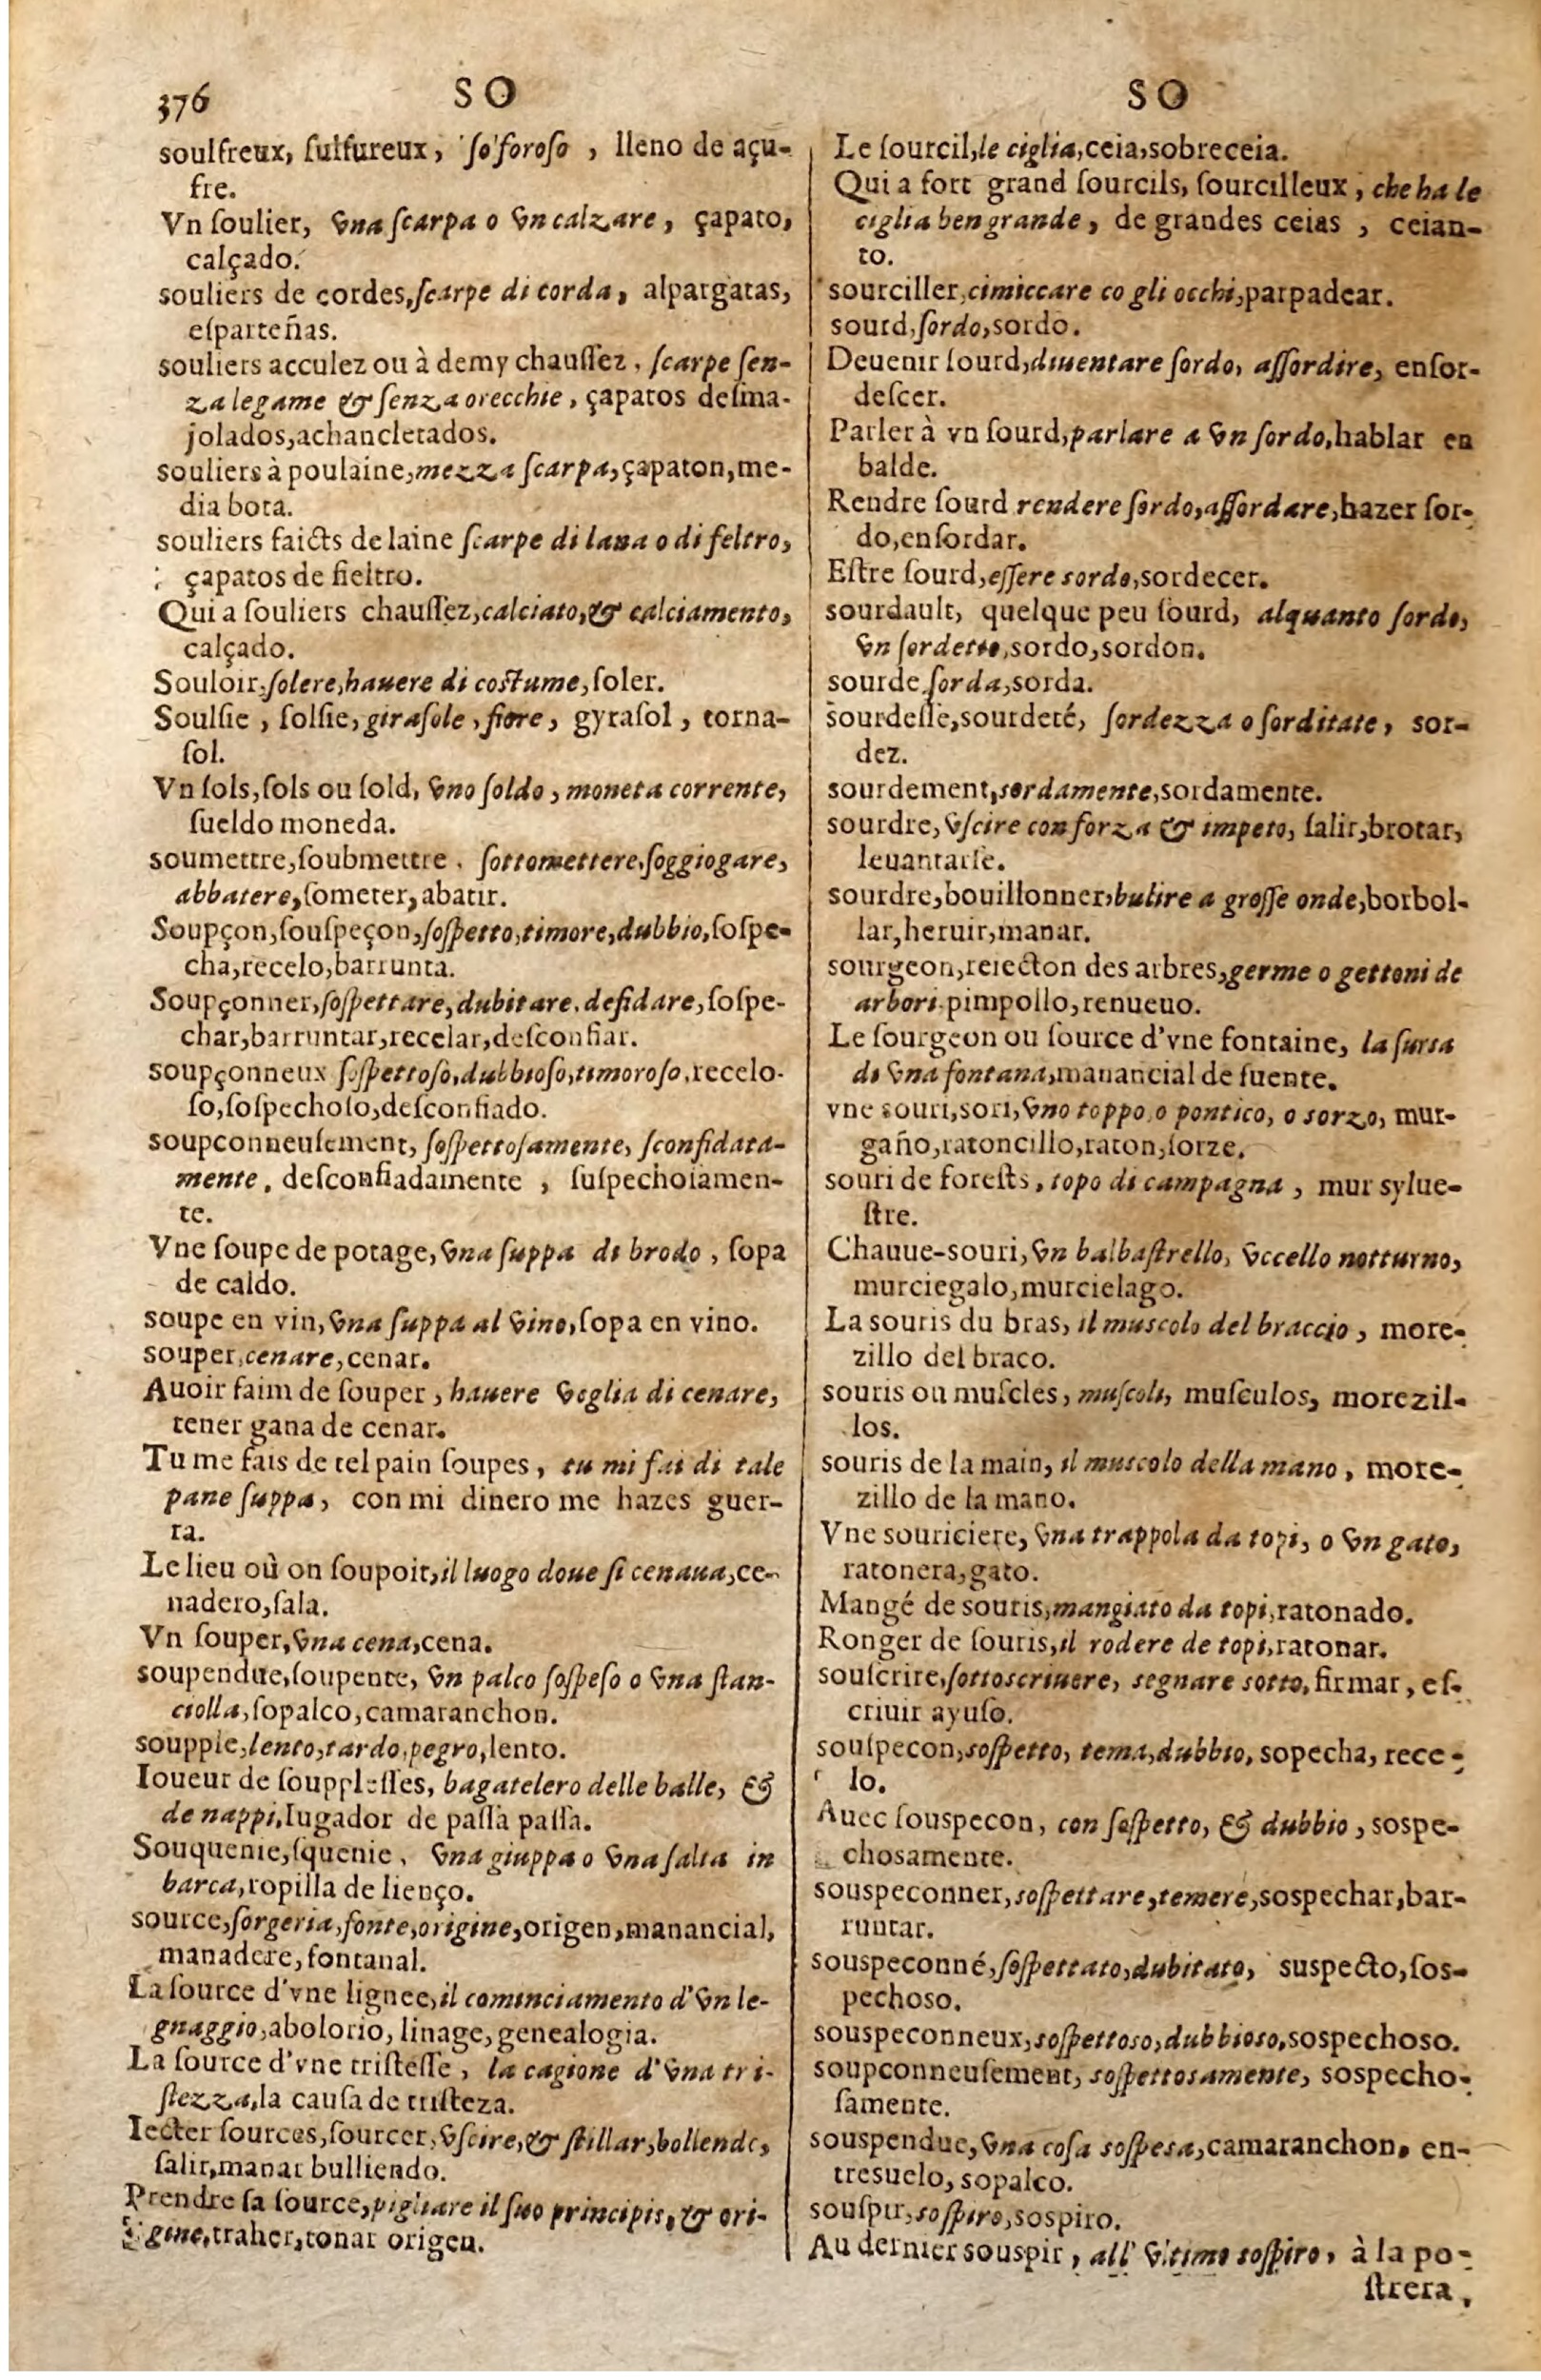 376
SO
soulfreux, ſulfureux, ſolforoſo, lleno de açu-
fre.
Vn ſoulier, vna ſcarpa o vn calzare, çapato,
calçado.
souliers de cordes, ſcarpe di corda, alpargatas,
eſparteñas.
souliers acculez ou à demy chauſſez, ſcarpe ſen-
za legame & ſenza orecchie, çapatos deſma-
jolados, achancletados.
souliers à poulaine, mezza ſcarpa, çapaton, me-
dia bota.
souliers faicts de laine ſcarpe di lana o di feltro,
çapatos de fieltro.
Qui a ſouliers chauſſez, calciato, & calciamento,
calçado.
Souloir, ſolere, hauere di costume, ſoler.
Soulſie, ſolſie, giraſole, fiore, gyraſol, torna-
ſol.
Vn ſols, ſols ou ſold, vno ſoldo, moneta corrente,
ſueldo moneda.
soumettre, ſoubmettre, ſottomettere, ſoggiogare,
abbatere, ſometer, abatir.
Soupçon, ſouſpeçon, ſoſpetto, timore, dubbio, ſoſpe-
cha, recelo, barrunta.
Soupçonner, ſoſpettare, dubitare, deſidare, ſoſpe-
char, barruntar, recelar, deſconfiar.
soupçonneux ſoſpettoſo, dubbioſo, timoroſo, recelo-
ſo, ſoſpechoſo, deſconfiado.
soupconneuſement, ſoſpettoſamente, ſconfidata-
mente, deſconfiadamente, ſuſpechoſamen-
te.
Vne ſoupe de potage, vna ſuppa di brodo, ſopa
de caldo.
soupe en vin, vna ſuppa al vino, ſopa en vino.
souper, cenare, cenar.
Auoir faim de ſouper, hauere voglia di cenare,
tener gana de cenar.
Tu me fais de tel pain ſoupes, tu mi fai di tale
pane ſuppa, con mi dinero me hazes guer-
ra.
Le lieu où on ſoupoit, il luogo doue ſi cenaua, ce-
nadero, ſala.
Vn ſouper, vna cena, cena.
soupendue, ſoupente, vn palco ſoſpeſo o vna ſtan-
ciolla, ſopalco, camaranchon.
soupple, lento, tardo, pegro, lento.
Ioueur de ſoupplesſes, bagatelero delle balle, &
de nappi, Iugador de paſſa paſſa.
Souquenie, ſquenie, vna giuppa o vna ſalta in
barca, ropilla de lienço.
source, ſorgeria, fonte, origine, origen, manancial,
manadere, fontanal.
La ſource d'vne lignee, il cominciamento d'vn le-
gnaggio, abolorio, linage, genealogia.
La ſource d'vne triſteſſe, la cagione d'vna tri-
ſtezza, la cauſa de triſteza.
Iecter ſources, ſourcer, vſcire, & ſtillar, bollendo,
ſalir, manar bulliendo.
Prendre ſa ſource, pigliare il ſuo principio, & ori-
gine, traher, tonar origen.
SO
Le ſourcil, le ciglia, ceia, sobreceia.
Qui a fort grand ſourcils, ſourcilleux, che ha le
ciglia ben grande, de grandes ceias, ceian-
to.
sourciller, cimiccare co gli occhi, parpadear.
sourd, ſordo, sordo.
Deuenir ſourd, diuentare ſordo, aſſordire, enſor-
deſcer.
Parler à vn ſourd, parlare a vn ſordo, hablar en
balde.
Rendre ſourd rendere ſordo, aſſordare, hazer ſor-
do, enſordar.
Eſtre ſourd, eſſere sordo, sordecer.
sourdault, quelque peu ſourd, alquanto ſordo,
vn ſordetto, sordo, sordon.
sourde, ſorda, sorda.
sourdeſſe, sourdeté, ſordezza o ſorditate, sor-
dez.
sourdement, sordamente, sordamente.
sourdre, vſcire con forza & impeto, ſalir, brotar,
leuantarſe.
sourdre, bouillonner, bulire a groſſe onde, borbol-
lar, heruir, manar.
sourgeon, reiecton des arbres, germe o gettoni de
arbori, pimpollo, renueuo.
Le ſourgeon ou ſource d'vne fontaine, la ſursa
di vna fontana, manancial de fuente.
vne souri, sori, vno toppo, o pontico, o sorzo, mur-
gaño, ratoncillo, raton, ſorze.
souri de foreſts, topo di campagna, mur sylue-
ſtre.
Chauue-souri, vn balbaſtrello, vccello notturno,
murciegalo, murcielago.
La souris du bras, il muscolo del braccio, more-
zillo del braco.
souris ou muſcles, muſcoli, muſculos, morezil-
los.
souris de la main, il muscolo della mano, more-
zillo de la mano.
Vne souriciere, vna trappola da topi, o vn gato,
ratonera, gato.
Mangé de souris, mangiato da topi, ratonado.
Ronger de ſouris, il rodere de topi, ratonar.
souſcrire, ſottoscriuere, segnare sotto, firmar, eſ-
criuir ayuſo.
souſpecon, soſpetto, tema, dubbio, sopecha, rece-
lo.
Auec ſouspecon, con ſoſpetto, & dubbio, sospe-
chosamente.
souspeconner, soſpettare, temere, sospechar, bar-
runtar.
souspeconné, ſoſpettato, dubitato, suspecto, ſos-
pechoso.
souspeconneux, soſpettoso, dubbioso, sospechoso.
soupconneuſement, soſpettosamente, sospecho-
ſamente.
souspendue, vna coſa soſpesa, camaranchon, en-
tresuelo, sopalco.
souſpir, soſpiro, sospiro.
Au dernier souspir, all' vltimo soſpiro, à la po-
ſtrera,